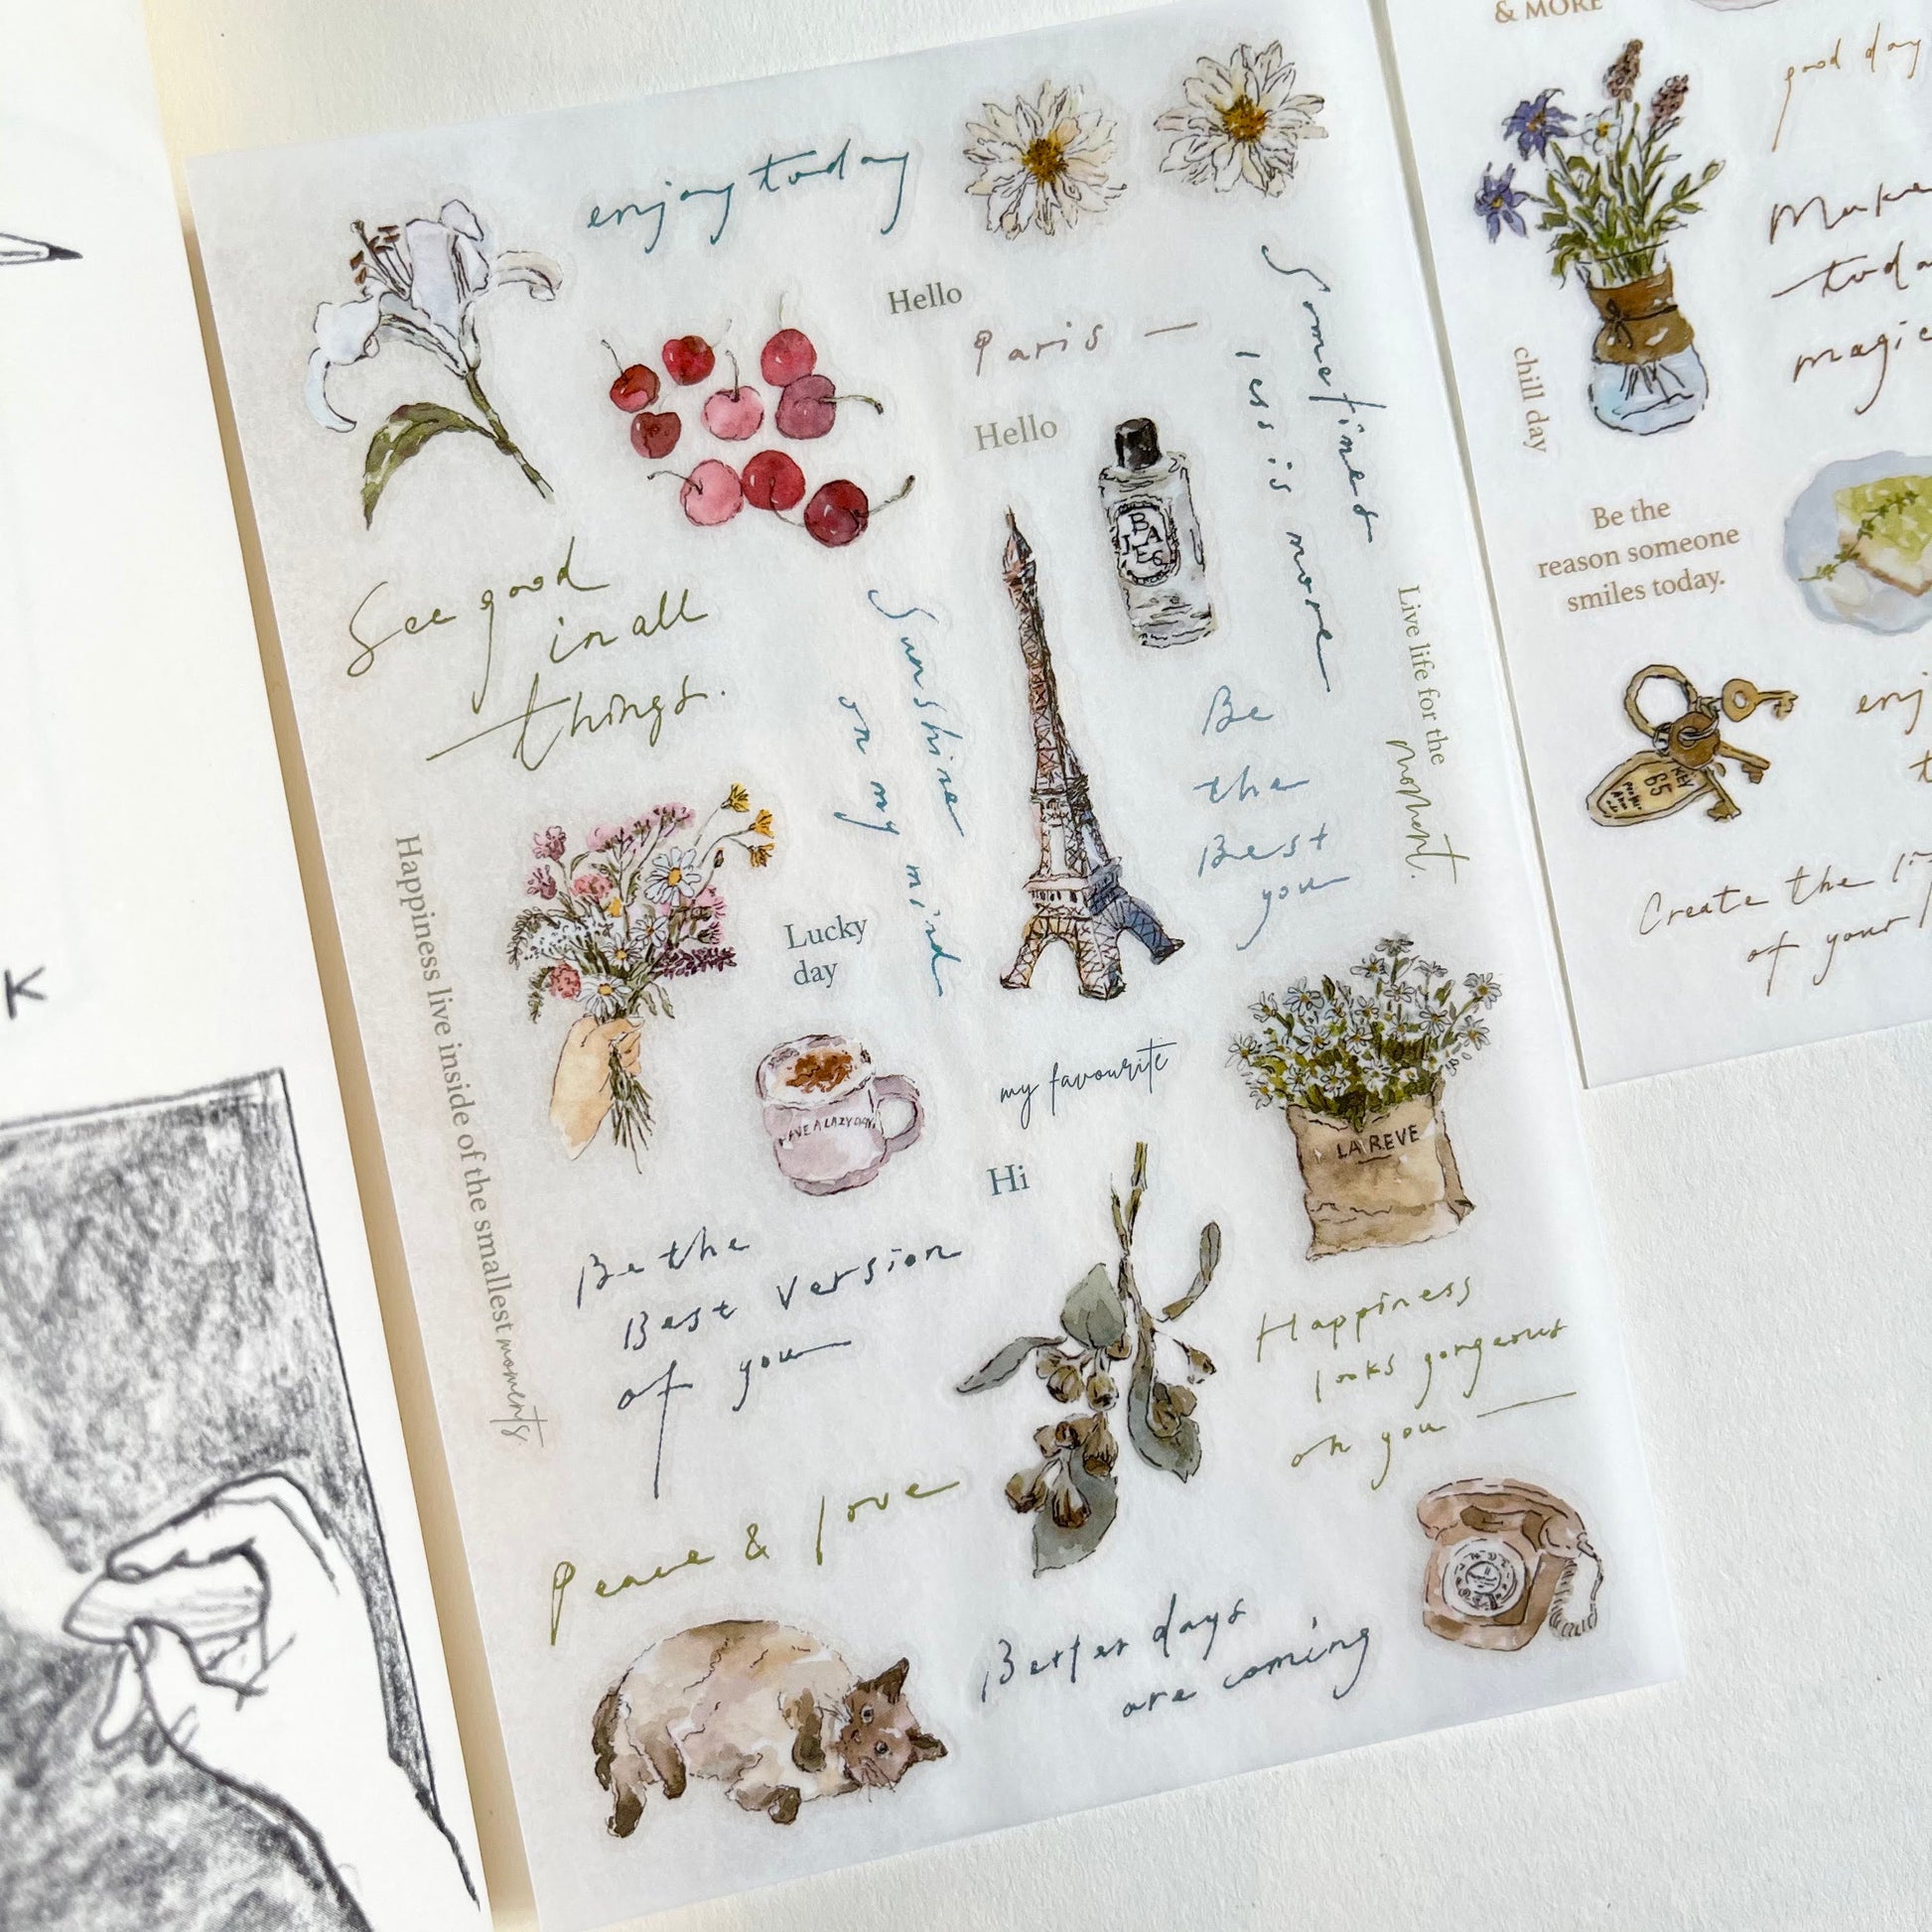 enjoy today
Hello
Paris —
Hello
Sometimes
less is more
BA
IES
See good
in all
things.
Sunshine
on my mind
Be
the
Best
you
Live life for the
moment.
Happiness live inside of the smallest moments.
Lucky
day
HAVE A LAZY DAY
my favourite
Hi
LA REVE
Be the
Best version
of you
Happiness
looks gorgeous
on you —
Peace & love
Better days
are coming
& MORE
good day
Make
magic
chill day
Be the
reason someone
smiles today.
KEY
65
Create the
of your
K